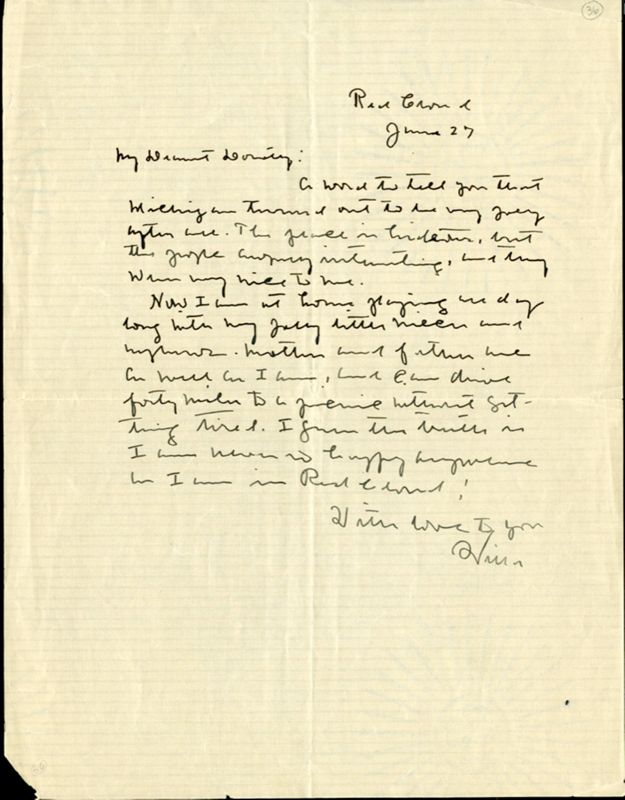 36
Red Cloud
June 27
My Dearest Dorothy:
A word to tell you that
Michigan turned out to be very jolly
after all. The place is hideous, but
the people awfully interesting, and they
were very nice to me.
Now I am at home playing all day
long with my jolly little nieces and
nephews. Mother and father are
as well as I am, and can drive
forty miles to a picnic without get-
ting tired. I guess the truth is
I am never so happy anywhere
as I am in Red Cloud!
With love to you
Willa